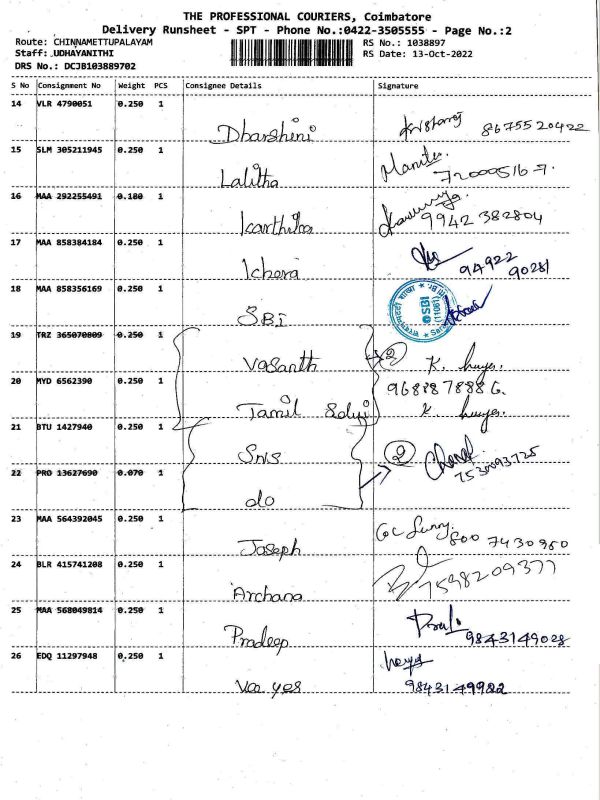 THE PROFESSIONAL COURIERS, Coimbatore
Delivery Runsheet - SPT - Phone No.:0422-3505555 - Page No.:2
Route: CHINNAMETTUPALAYAM RS No.: 1038897
Staff: UDHAYANITHI RS Date: 13-Oct-2022
DRS No.: DCJB103889702
S No Consignment No Weight PCS Consignee Details Signature
14 VLR 4790051 0.250 1
Dharshini 8675520422
15 SLM 305211945 0.250 1
Lalitha
16 MAA 292255491 0.100 1
Karthika 9942382804
17 MAA 858384184 0.250 1
94922
Ichera 90281
18 MAA 858356169 0.250 1
SBI SBI (11061)
19 TRZ 365070809 0.250 1
Vasanth 2 K.
20 MYD 6562390 0.250 1
9688878886.
Tamil K.
21 BTU 1427940 0.250 1
SNS 2 7530093725
22 PRO 13627690 0.070 1
do
23 MAA 564392045 0.250 1
Joseph 800 7430960
24 BLR 415741208 0.250 1
Archana 7598209377
25 MAA 568049814 0.250 1
Pradeep 9843149028
26 EDQ 11297948 0.250 1
9843149982